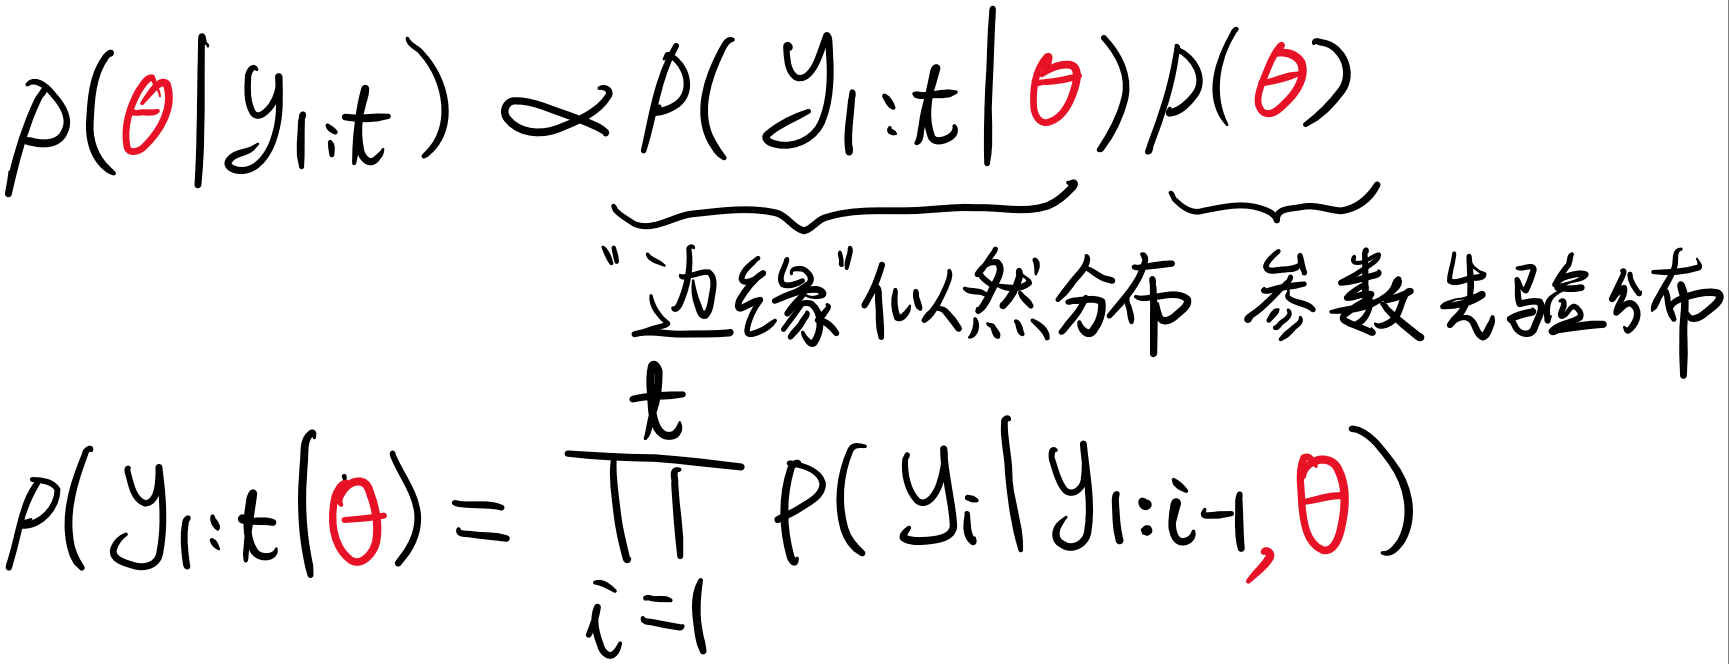 p(θ|y₁:t) ∝ p(y₁:t|θ)p(θ)
"边缘"似然分布 参数先验分布
p(y₁:t|θ) = ∏ᵢ₌₁ᵗ p(yᵢ|y₁:ᵢ₋₁,θ)